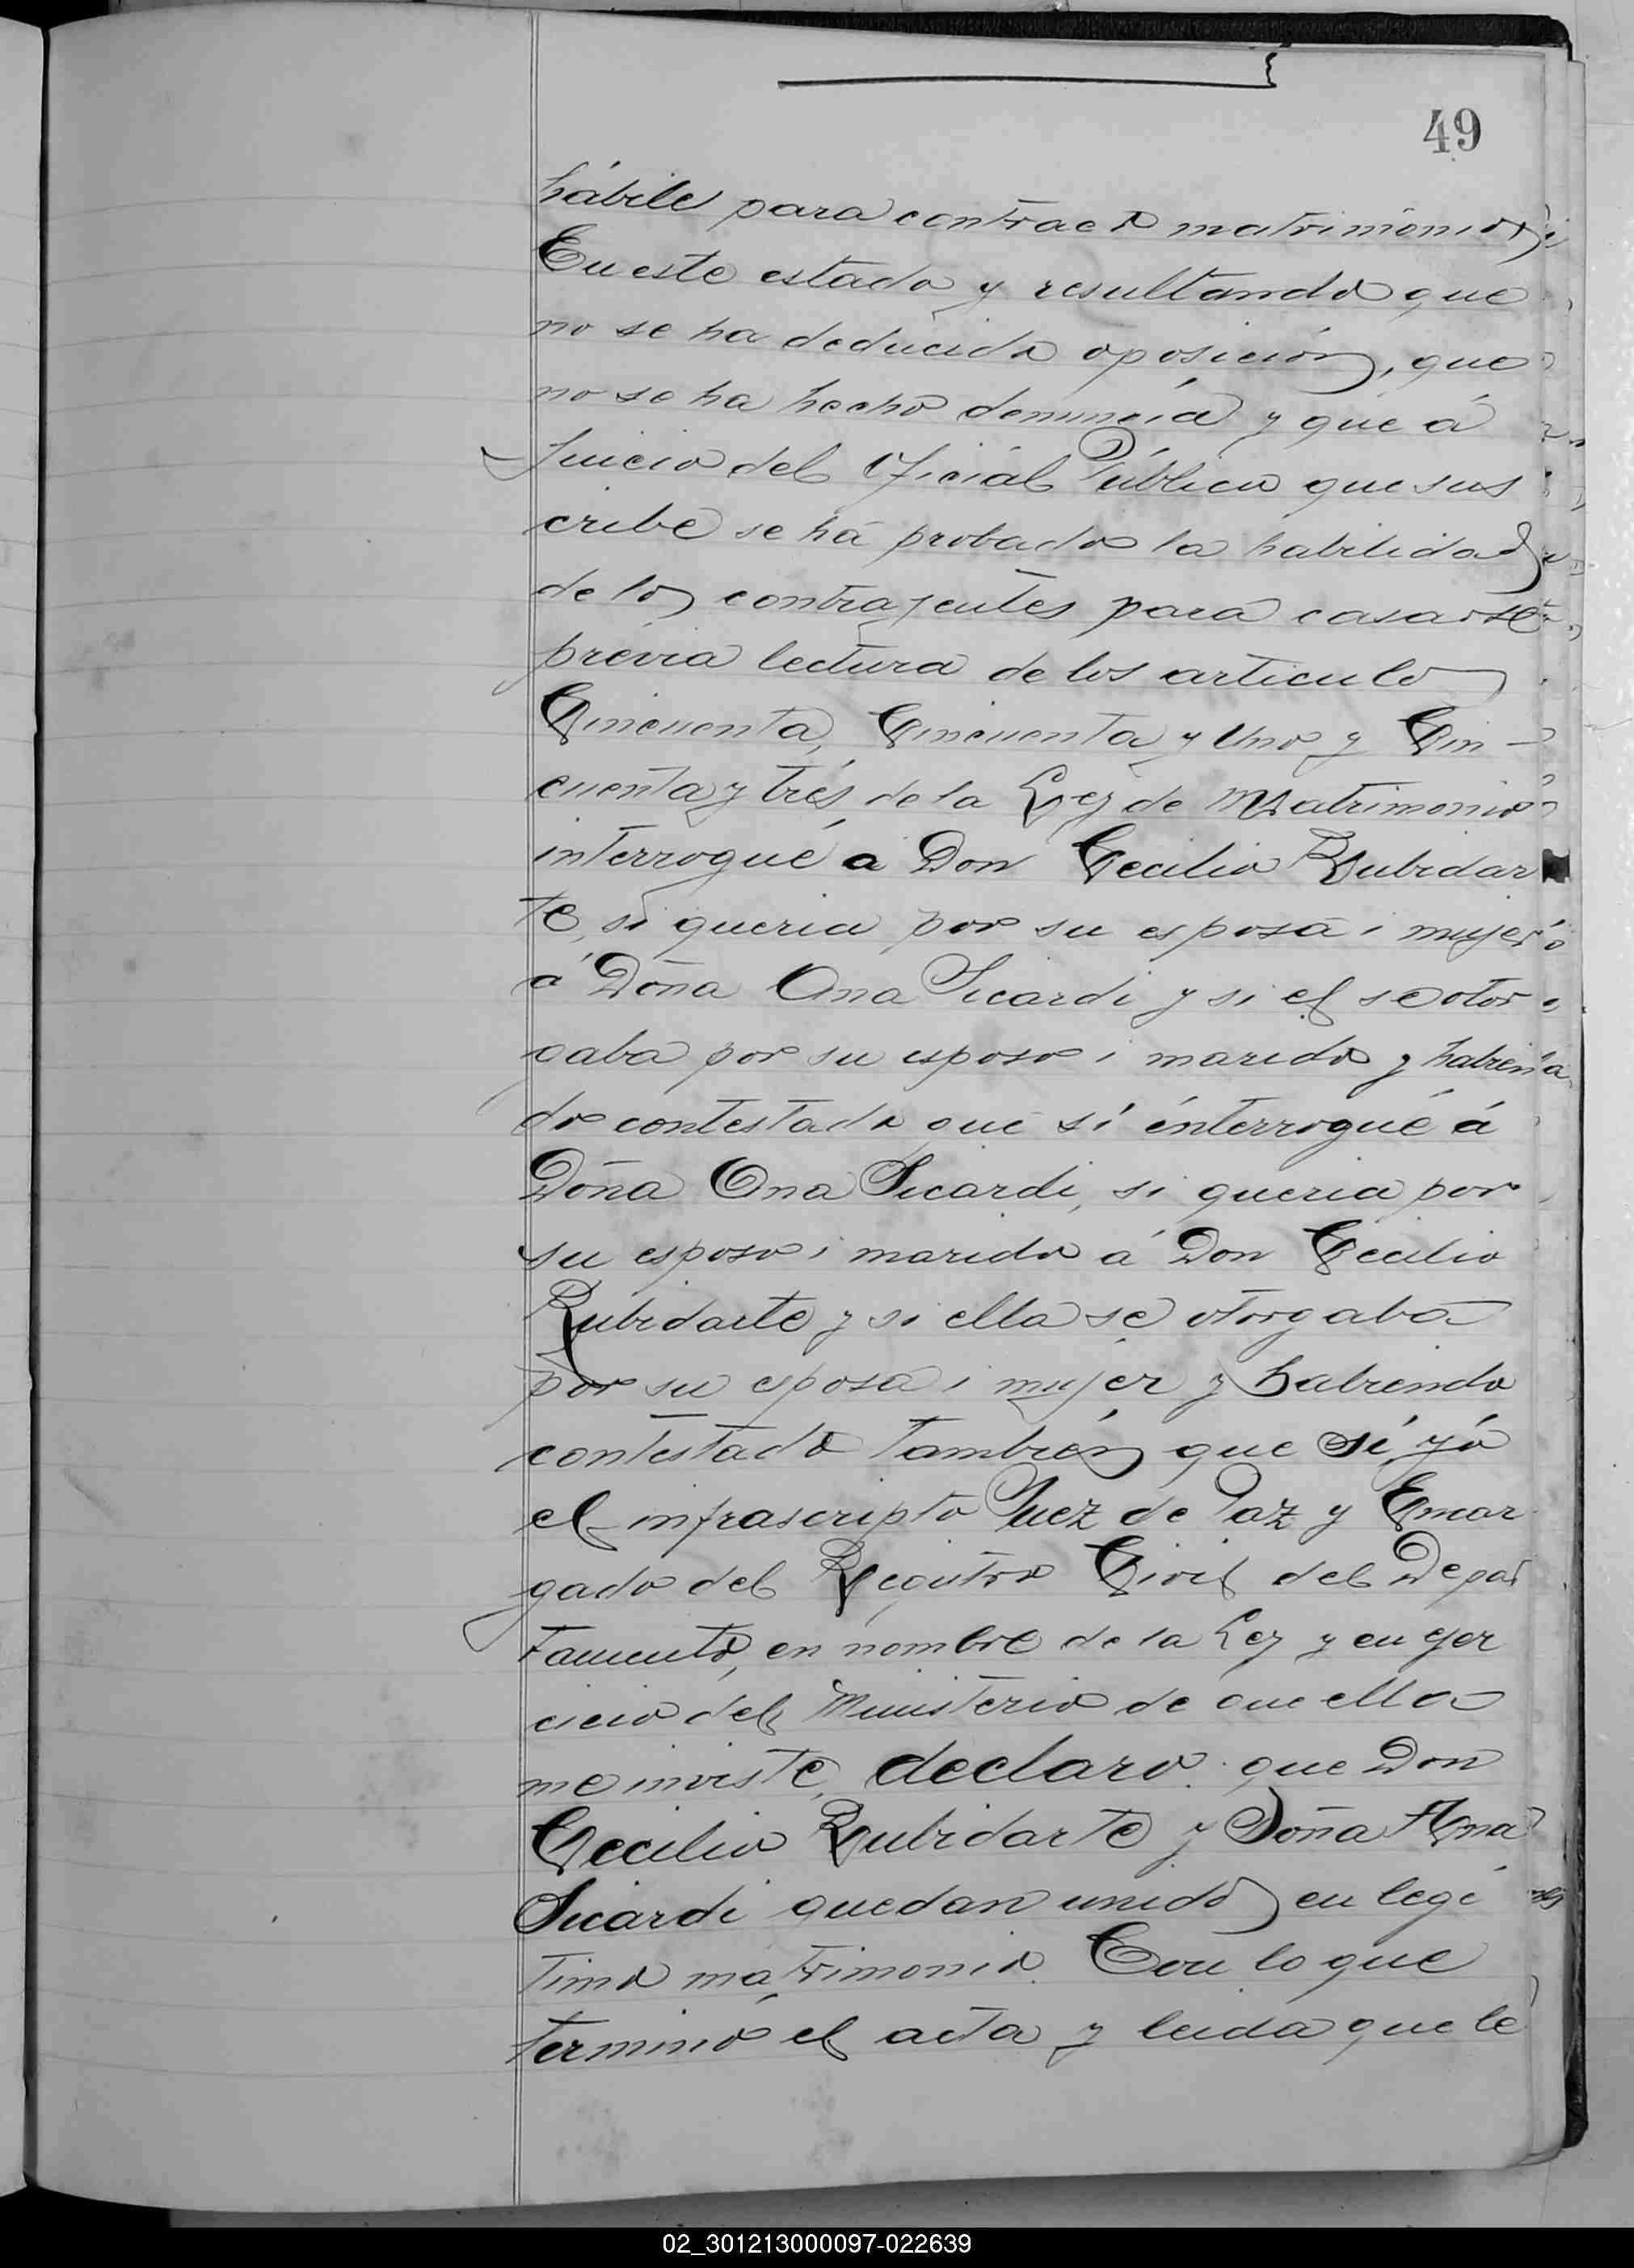 49
hábiles para contraer matrimonio;
En este estado y resultando que
no se ha deducido oposición, que
no se ha hecho denuncia y que á
Juicio del Oficial Público que sus
cribe se há probado la habilidad
de los contrajentes para casarse
prévia lectura de los articulos
Cincuenta, Cincuenta y Uno y Cin-
cuenta y trés, de la Ley de Matrimonio
interrogué a Don Cecilio Rubidar
te, si queria por su esposa i mujer
á Doña Ana Sicardi y si el se otor
gaba por su esposo i marido y habien
do contestado que sí interrogué á
Doña Ana Sicardi, si queria por
su esposo i marido á Don Cecilio
Rubidarte y si ella se otorgaba
por su esposa i mujer y habiendo
contestado también que sí, yó
el infrascripto Juez de Paz y Encar
gado del Registro Civil del Depar
tamento, en nombre de la Ley y en ejer
cicio del Ministerio de que ella
me inviste, declaro: que Don
Cecilio Rubidarte y Doña Ana
Sicardi quedan unidos en legí
timo matrimonio. Con lo que
terminó el acta y leida que lé
02_301213000097-022639